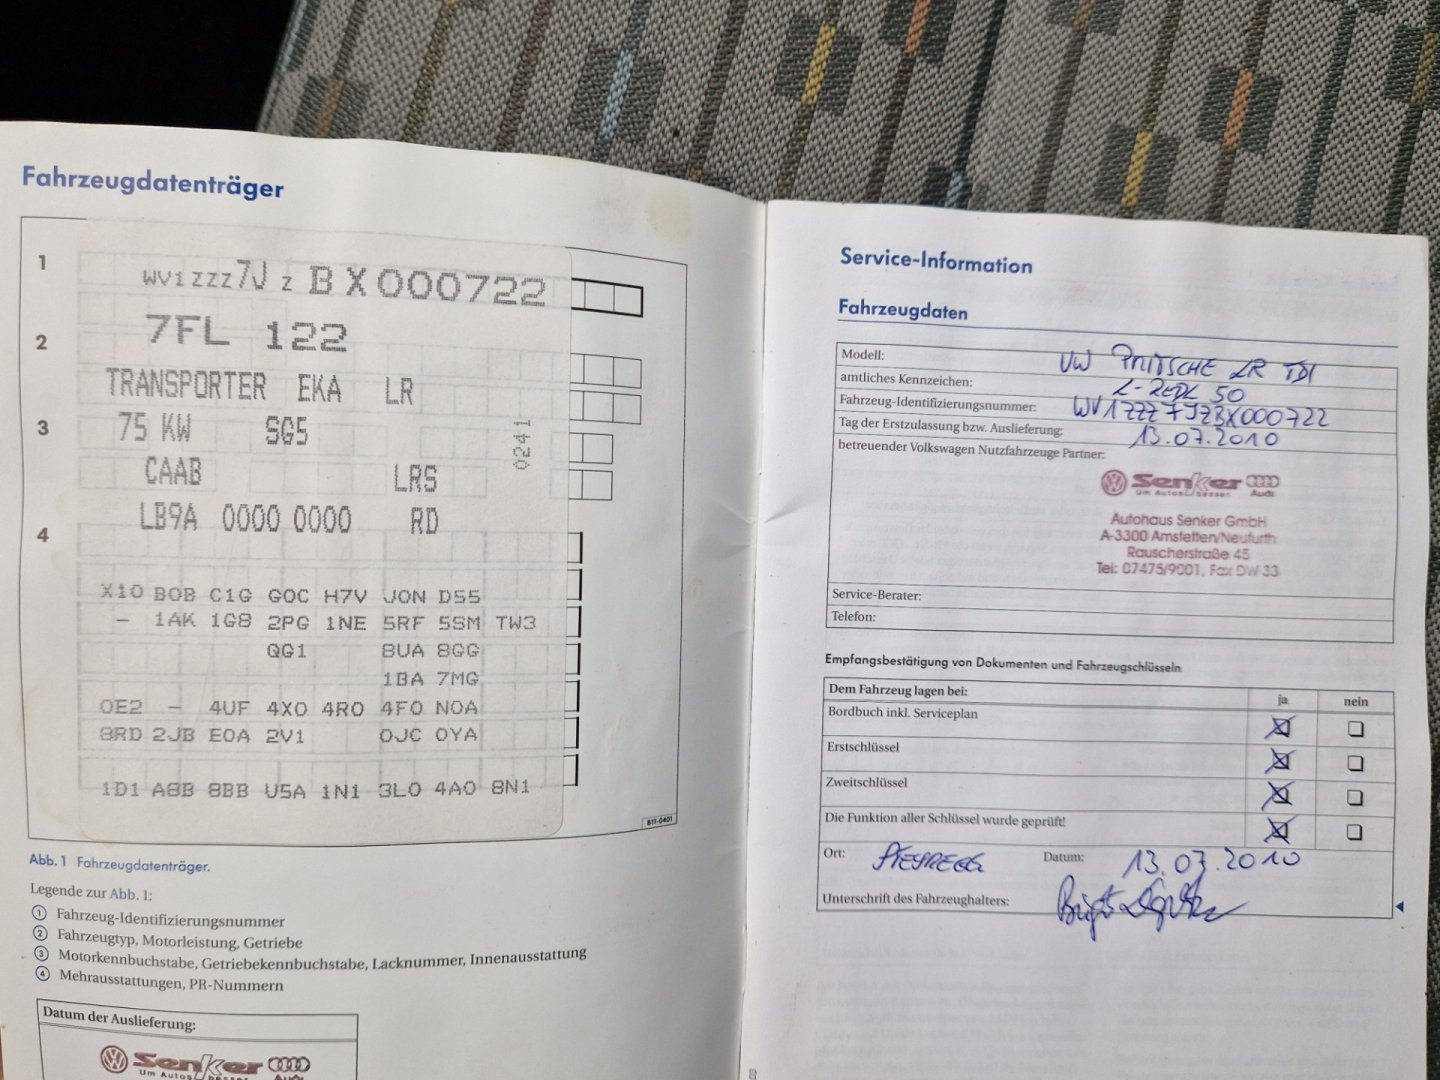 Fahrzeugdatenträger
1
WV1ZZZ7J Z BX000722
2
7FL 122
TRANSPORTER EKA LR
3
75 KW SG5
0241
CAAB LRS
LB9A 0000 0000 RD
4
X10 B0B C1G G0C H7V J0N D55
- 1AK 1G8 2PG 1NE 5RF 5SM TW3
QG1 8UA 8GG
1BA 7MG
0E2 - 4UF 4X0 4R0 4F0 N0A
8RD 2JB E0A 2V1 0JC 0YA
1D1 A8B 8BB U5A 1N1 3L0 4A0 8N1
B1T-0401
Abb. 1 Fahrzeugdatenträger.
Legende zur Abb. 1:
1 Fahrzeug-Identifizierungsnummer
2 Fahrzeugtyp, Motorleistung, Getriebe
3 Motorkennbuchstabe, Getriebekennbuchstabe, Lacknummer, Innenausstattung
4 Mehrausstattungen, PR-Nummern
Datum der Auslieferung:
Senker
Um Autos besser Audi
Service-Information
Fahrzeugdaten
Modell: VW PRITSCHE LR TDI
amtliches Kennzeichen:
Fahrzeug-Identifizierungsnummer: WV1ZZZ7JZBX000722
Tag der Erstzulassung bzw. Auslieferung: 13.07.2010
betreuender Volkswagen Nutzfahrzeuge Partner:
Senker
Um Autos besser Audi
Autohaus Senker GmbH
A-3300 Amstetten/Neufurth
Rauscherstraße 45
Tel: 07475/9001, Fax DW 33
Service-Berater:
Telefon:
Empfangsbestätigung von Dokumenten und Fahrzeugschlüsseln
Dem Fahrzeug lagen bei: ja nein
Bordbuch inkl. Serviceplan
Erstschlüssel
Zweitschlüssel
Die Funktion aller Schlüssel wurde geprüft!
Ort: Datum: 13.07.2010
Unterschrift des Fahrzeughalters: